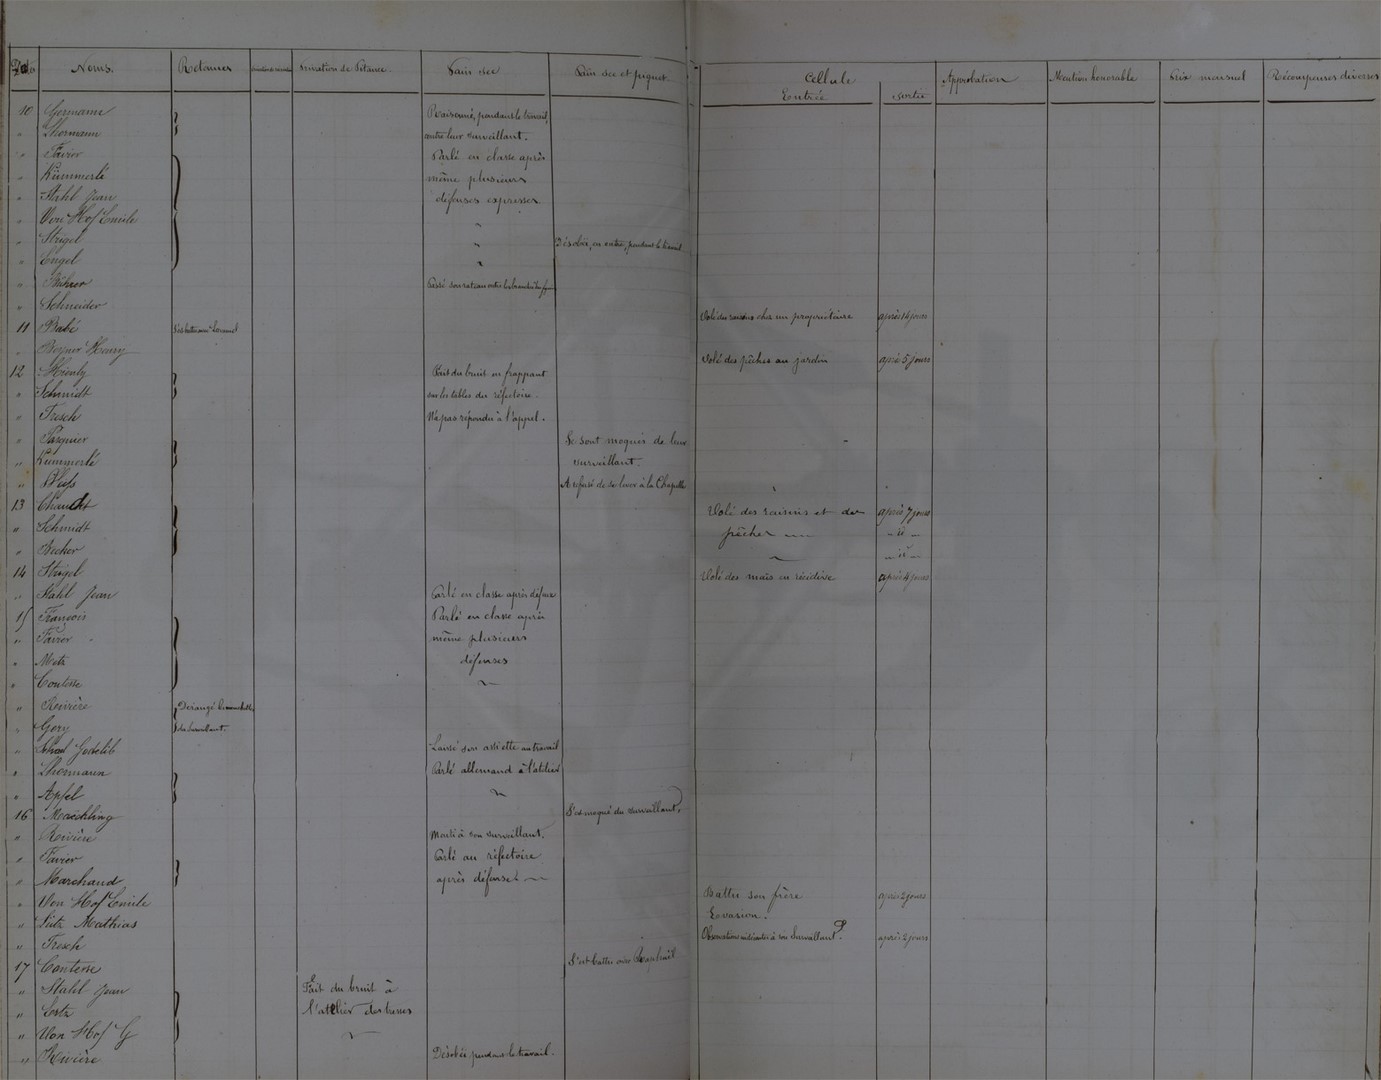 Dates Noms. Retenues Privation de Pitance. Pain sec Pain sec et piquet Cellule Entrée Sortie Approbation Mention honorable Prix mensuel Récompenses diverses
10 Germann Raisonné, pendant le travail,
" Lhormann outre leur surveillant.
" Favier Parlé en classe après
" Kümmerlé même plusieurs
" Stahl Jean défenses expresses
" Von Hof Emile "
" Strigel " Désobéi, en outre, pendant le travail
" Engel "
" Bührer Cassé son rateau contre
" Schneider Volé des raisins chez un propriétaire après 16 jours
11 Babé S'est battu avec
" Henry Volé des pêches au jardin après 5 jours
12 Hienly Fait du bruit en frappant
" Schmidt sur les tables du réfectoire.
" Tresch N'a pas répondu à l'appel.
" Parguier Se sont moqués de leur
" Kümmerlé surveillant.
" Bluss A refusé de se lever à la Chapelle
13 Chaudt Volé des raisins et des après 7 jours
" Schmidt pêches " " id "
" Becker " " id "
14 Strigel Volé des maïs en récidive après 4 jours
" Stahl Jean Parlé en classe après défense
15 François Parlé en classe après
" Favier même plusieurs
" Metz défenses
" Contesse "
" Rivière Dérangé
" Gery du surveillant.
" Gottlib Laissé son assiette au travail
" Lhormann Parlé allemand à l'atelier
" Apfel "
16 Maechling S'est moqué du surveillant.
" Rivière Menti à son surveillant.
" Favier Parlé au réfectoire
" Marchand après défense
" Von Hof Emile Battu son frère après 2 jours
" Seitz Mathias Evasion.
" Tresch Observations indécentes à son Surveillant. après 2 jours
17 Contesse S'est battu avec Raphaël
" Stahl Jean Fait du bruit à
" Lortz l'atelier des tresses
" Von Hof G "
" Rivière Désobéi pendant le travail.